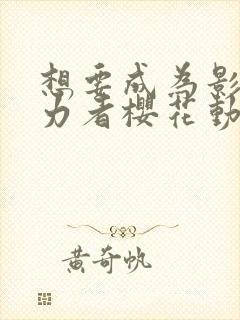 想要成為影
力者櫻花動
黃奇帆